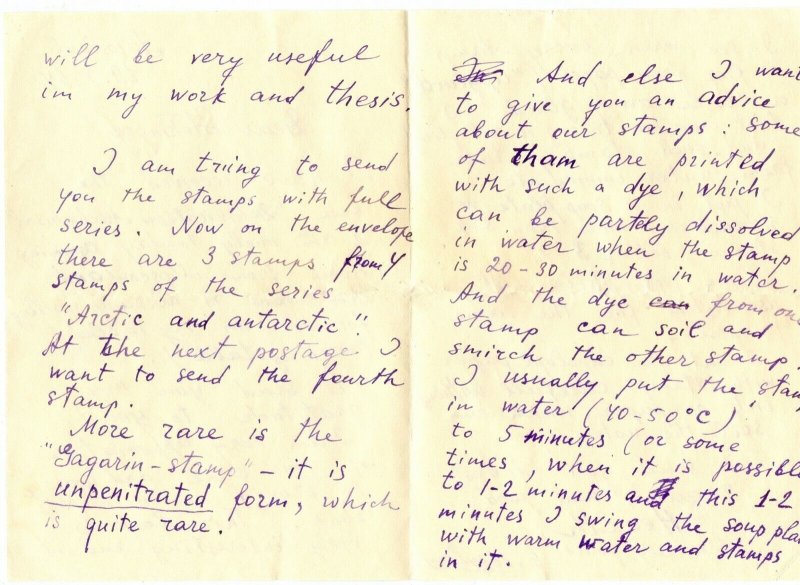 will be very useful
im my work and thesis.
I am tring to send
you the stamps with full
series. Now on the envelope
there are 3 stamps from 4
stamps of the series
"Arctic and antarctic".
At the next postage I
want to send the fourth
stamp.
More rare is the
"Gagarin-stamp" - it is
unpenitrated form, which
is quite rare.
And else I want
to give you an advice
about our stamps: some
of tham are printed
with such a dye, which
can be partely dissolved
in water when the stamp
is 20-30 minutes in water.
And the dye can from one
stamp can soil and
smirch the other stamp.
I usually put the stam
in water (40-50°C)
to 5 minutes (or some
times, when it is possible
to 1-2 minutes and this 1-2
minutes I swing the soup pla
with warm water and stamps
in it.